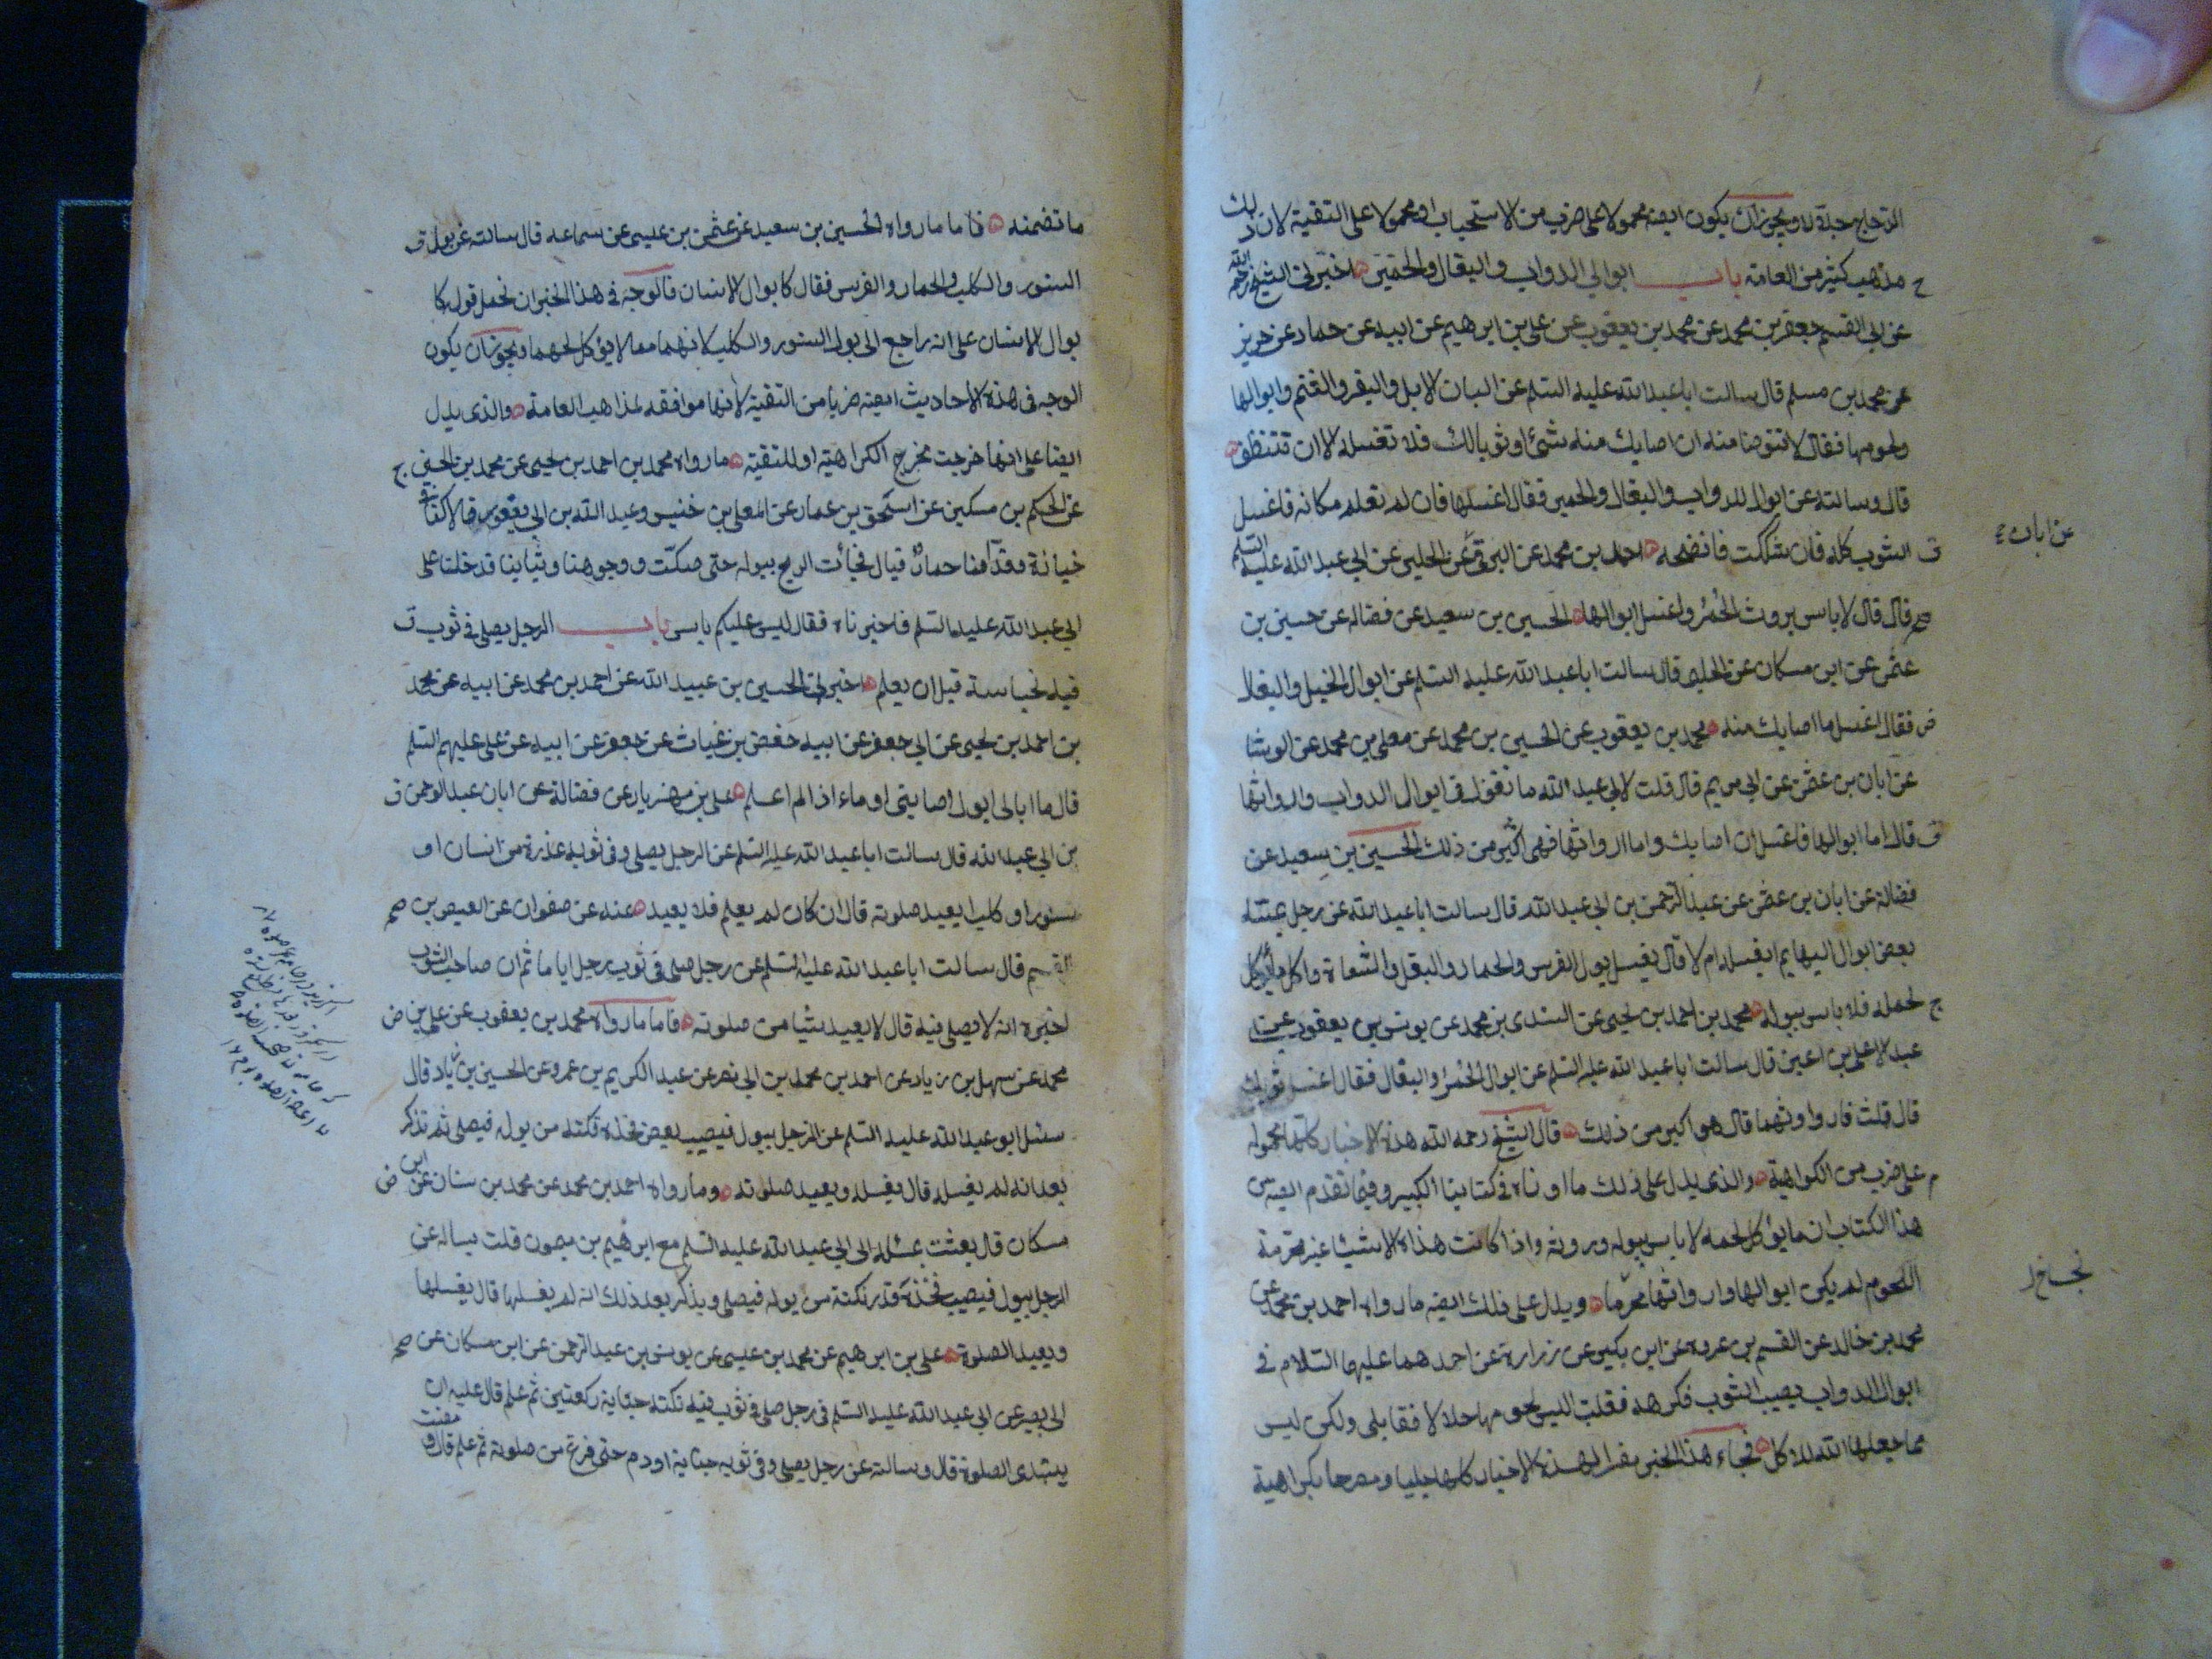 الدجاج جلالة ويجوز ان يكون ايضه محمولا على ضرب من الاستحباب او محمولا على التقية لان ذلك
مذهب كثير من العامة باب ابوال الدواب والبغال والحمير اخبرني الشيخ رحمه الله
عن ابي القسم جعفر بن محمد عن محمد بن يعقوب عن علي بن ابرهيم عن ابيه عن حماد عن حريز
عن محمد بن مسلم قال سالت ابا عبد الله عليه السلم عن البان الابل والبقر والغنم وابوالها
ولحومها فقال لا تتوضا منه ان اصابك منه شئ او ثوبا لك فلا تغسله الا ان تتنظف
قال وسالته عن ابوال الدواب والبغال والحمير فقال اغسلها فان لم تعلم مكانه فاغسل
الثوب كله فان شككت فانضحه احمد بن محمد عن البرقي عن الحلبي عن ابي عبد الله عليه السلم
عن ابان ع
قال قال لا باس بروث الحمر واغسل ابوالها الحسين بن سعيد عن فضاله عن حسين بن
عثمن عن ابن مسكان عن الحلبي قال سالت ابا عبد الله عليه السلم عن ابوال الخيل والبغال
فقال اغسل ما اصابك منه محمد بن يعقوب عن الحسين بن محمد عن معلى بن محمد عن الوشا
عن ابان بن عثمن عن ابي مريم قال قلت لابي عبد الله ما تقول في ابوال الدواب وارواثها
قال اما ابوالها فاغسل ان اصابك واما ارواثها فهي اكثر من ذلك الحسين بن سعيد عن
فضالة عن ابان بن عثمن عن عبد الرحمن بن ابي عبد الله قال سالت ابا عبد الله عن رجل يمسه
بعض ابوال البهايم ايغسله ام لا قال يغسل بول الفرس والحمار والبغل والشاة وكل ما يؤكل
لحمه فلا باس ببوله محمد بن احمد بن يحيى عن السندي بن محمد عن يونس بن يعقوب عن
عبد الاعلى بن اعين قال سالت ابا عبد الله عليه السلم عن ابوال الحمر والبغال فقال اغسل ثوبك
قال قلت فارواثهما قال هو اكبر من ذلك قال الشيخ رحمه الله هذه الاخبار كلها محموله
على ضرب من الكراهية والذي يدل على ذلك ما اوردناه في كتابنا الكبير وفيما تقدم ايضه من
هذا الكتاب ان ما يؤكل لحمه لا باس ببوله وروثه واذا كانت هذه الاشيا غير محرمة
اللحوم لم يكن ابوالها وارواثها محرما ويدل على ذلك ايضه ما رواه احمد بن محمد عن
محمد بن خالد عن القسم بن عروه عن ابن بكير عن زرارة عن احدهما عليهما السلام في
ابوال الدواب يصيب الثوب فكرهه فقلت اليس لحومها حلالا فقال بلى ولكن ليس
مما جعلها الله للاكل فجاء هذا الخبر مفسرا لهذه الاخبار كلها جليا ومصرحا بكراهية
ما تضمنه فاما ما رواه الحسين بن سعيد عن عثمن بن عيسى عن سماعه قال سالته عن بول
السنور والكلب والحمار والفرس فقال كابوال الانسان فالوجه في هذا الخبر ان نحمل قوله كا
بوال الانسان على انه راجع الى بول السنور والكلب لانهما مما لا يؤكل لحمهما ويجوز ان يكون
الوجه في هذه الاحاديث ايضه ضربا من التقية لانها موافقه لمذاهب العامة والذي يدل
ايضا على انها خرجت مخرج الكراهية او للتقيه ما رواه محمد بن احمد بن يحيى عن محمد بن الحسين
عن الحكم بن مسكين عن اسحق بن عمار عن المعلى بن خنيس وعبد الله بن ابي يعفور قالا كنا في
جنازة وقدامنا حمار فبال فجائت الريح ببوله حتى صكت وجوهنا وثيابنا فدخلنا على
ابي عبد الله عليه السلم فاخبرناه فقال ليس عليكم باس باب الرجل يصلي في ثوب
فيه نجاسة قبل ان يعلم اخبرني الحسين بن عبيد الله عن احمد بن محمد عن ابيه عن محمد
بن احمد بن يحيى عن ابي جعفر عن ابيه حفص بن غياث عن جعفر عن ابيه عن علي عليهم السلم
قال ما ابالي ابول اصابني او ماء اذا لم اعلم علي بن مهزيار عن فضالة عن ابان عبد الرحمن
بن ابي عبد الله قال سالت ابا عبد الله عليه السلم عن الرجل يصلي وفي ثوبه عذرة من انسان او
سنور او كلب ايعيد صلوته قال ان كان لم يعلم فلا يعيد عنه عن صفوان عن العيص بن
القسيم قال سالت ابا عبد الله عليه السلم عن رجل صلى في ثوب رجل اياما ثم ان صاحب الثوب
اخبره انه لا يصلى فيه قال لا يعيد شيا من صلوته فاما ما رواه محمد بن يعقوب عن علي بن
محمد عن سهل بن زياد عن احمد بن محمد بن ابي نصر عن عبد الكريم بن عمرو عن الحسين بن زياد قال
سئل ابو عبد الله عليه السلم عن الرجل يبول فيصيب بعض فخذه نكتة من بوله فيصلي ثم تذكر
بعد انه لم يغسله قال يغسله ويعيد صلوته وما رواه احمد بن محمد عن محمد بن سنان عن ابن
مسكان قال بعثت بمسئله الى ابي عبد الله عليه السلم مع ابرهيم بن ميمون قلت يساله عن
الرجل يبول فيصيب فخذه قدر نكتة من بوله فيصلي ويذكر بعد ذلك انه لم يغسلها قال يغسلها
ويعيد الصلوة علي بن ابرهيم عن محمد بن عيسى عن يونس بن عبد الرحمن عن ابن مسكان عن
ابي بصير عن ابي عبد الله عليه السلم في رجل صلى في ثوب فيه نكتة جنابة ركعتين ثم علم قال عليه ان
يبتدى الصلوة قال وسالته عن رجل يصلي وفي ثوبه جنابة او دم حتى فرغ من صلوته ثم علم قال مضت